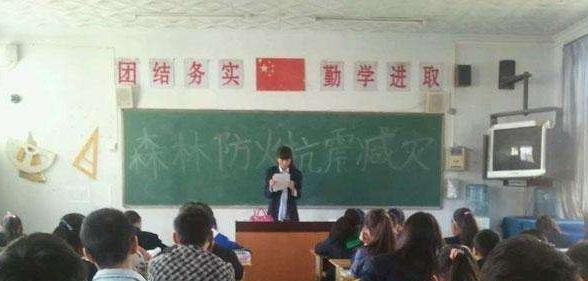 团结务实 勤学进取
森林防火抗震减灾